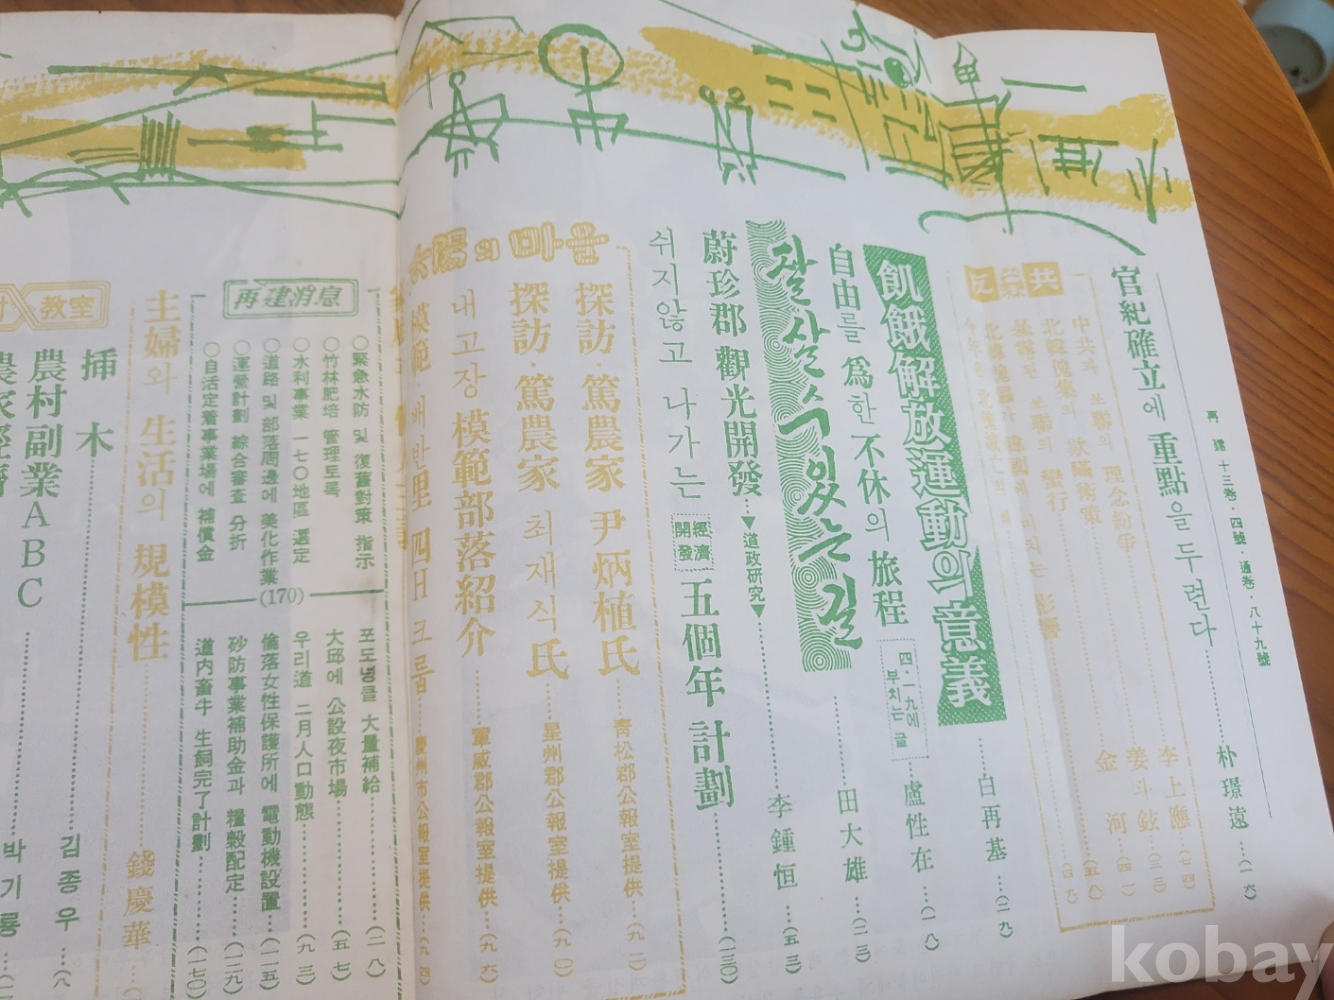 再建 十三卷·四號·通卷·八十九號
官紀確立에 重點을 두련다……朴璟遠…(一六)
共
中共과 쏘聯의 理念紛爭……李上應…(七四)
北韓傀集의 欺瞞術策……姜斗鉉…(三三)
蠻行……金河…(四一)
影響……(五八)
(四九)
飢餓解放運動의 意義……白再基…(二九)
自由를 爲한 不休의 旅程
四·一九에 부치는 글
盧性在…(一八)
잘 살 수 있는 길……田大雄…(二三)
蔚珍郡 觀光開發…▼道政硏究▼……李鍾恒…(五三)
쉬지않고 나가는 經濟開發 五個年 計劃……(一三〇)
太陽의 마을
探訪·篤農家 尹炳植氏……靑松郡公報室提供…(九二)
探訪·篤農家 최재식氏……星州郡公報室提供…(九〇)
내고장 模範部落紹介……軍威郡公報室提供…(九六)
模範·배반里 四H크룹……慶州市公報室提供…(九四)
再建消息
○緊急水防 및 復舊對策 指示
○竹林肥培 管理토록
○水利事業 一七〇地區 選定
○道路 및 部落周邊에 美化作業
○運營計劃 綜合審査 分折
○自活定着事業場에 補償金
(170)
포도넝쿨 大量補給……(二八)
大邱에 公設夜市場……(五七)
우리道 二月人口動態……(九三)
倫落女性保護所에 電動機設置……(一一五)
砂防事業補助金과 糧穀配定……(一二九)
道內畜牛 生飼完了計劃……(一七〇)
主婦와 生活의 規模性……錢慶華…
教室
揷木……김종우…(八
農村副業ABC……박기룡…(一
農家經濟
kobay